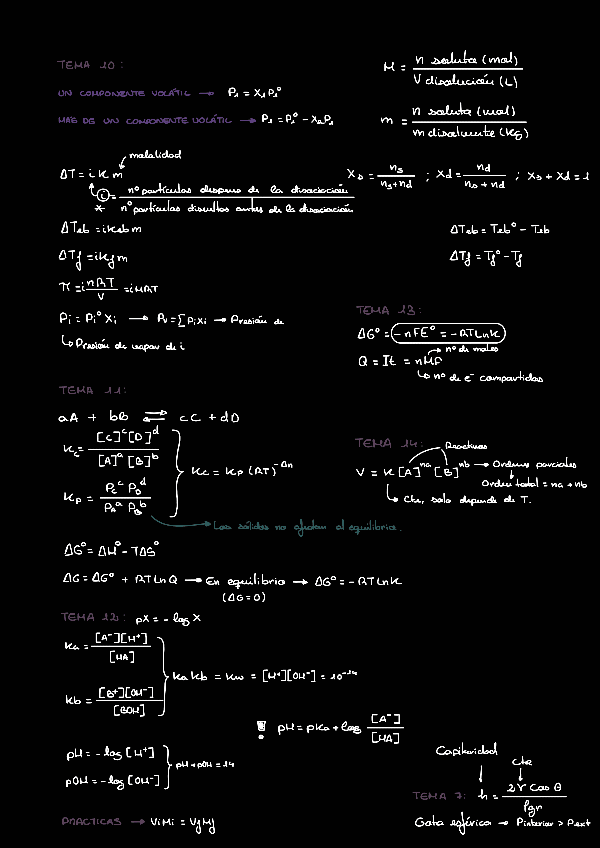 TEMA 10:
UN COMPONENTE VOLÁTIL → P₁ = X₁P₁°
MÁS DE UN COMPONENTE VOLÁTIL → P₁ = P₁° - X₂P₁
M = n soluto (mol) / V disolución (L)
m = n soluto (mol) / m disolvente (Kg)
molalidad
ΔT = i K m
i = nº partículas después de la disociación / nº partículas disueltas antes de la disociación
*
Xs = ns / ns + nd ; Xd = nd / ns + nd ; Xs + Xd = 1
ΔTeb = i Keb m
ΔTeb = Teb° - Teb
ΔTf = i Kf m
ΔTf = Tf° - Tf
π = i nRT / V = i MRT
Pi = Pi° Xi → Pv = Σ Pi Xi → Presión de
↳ Presión de vapor de i
TEMA 13:
ΔG° = -nFE° = -RTLnK
nº de moles
Q = It = nMF
↳ nº de e⁻ compartidos
TEMA 11:
aA + bB ⇌ cC + dD
Kc = [C]ᶜ[D]ᵈ / [A]ᵃ[B]ᵇ
Kp = Pcᶜ P_Dᵈ / P_Aᵃ P_Bᵇ
Kc = Kp (RT)^-Δn
Los sólidos no afectan al equilibrio.
TEMA 14:
Reactivos
V = K [A]^na [B]^nb → Ordenes parciales
Orden total = na + nb
↳ Cte, solo depende de T.
ΔG° = ΔH° - TΔS°
ΔG = ΔG° + RTLnQ → En equilibrio → ΔG° = -RTLnK
(ΔG = 0)
TEMA 12: pX = -log X
Ka = [A⁻][H⁺] / [HA]
Kb = [B⁺][OH⁻] / [BOH]
Ka Kb = Kw = [H⁺][OH⁻] = 10⁻¹⁴
! pH = pKa + log [A⁻] / [HA]
pH = -log [H⁺]
pOH = -log [OH⁻]
pH + pOH = 14
Capilaridad
cte
TEMA 7: h = 2γ Cos θ / ρgr
Gota esférica → Pinterior > Pext
PRÁCTICAS → ViMi = VfMf